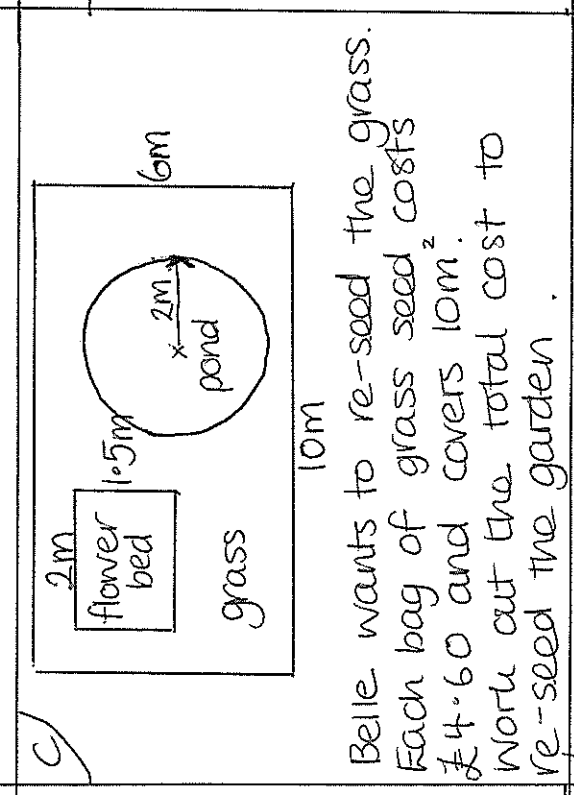 C
2m
flower
bed
1.5m
2m
pond
6m
grass
10m
Belle wants to re-seed the grass.
Each bag of grass seed costs
£4.60 and covers 10m².
Work out the total cost to
re-seed the garden.